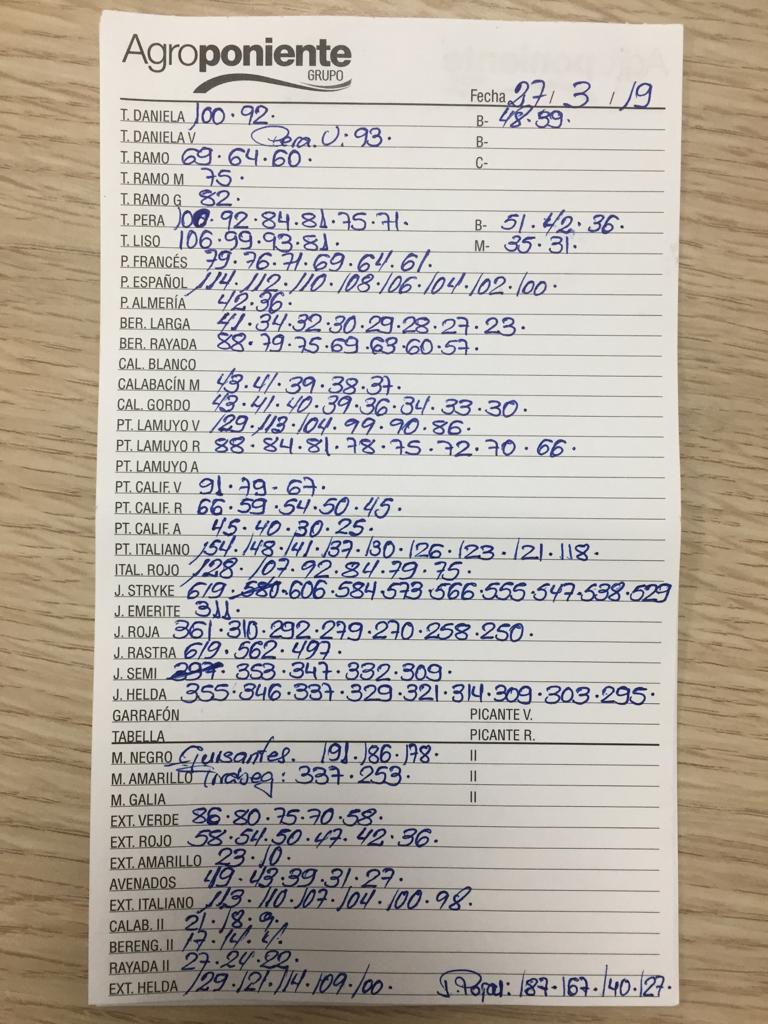 Agroponiente
GRUPO
Fecha 27 / 3 / 19
T. DANIELA 100 · 92 · B- 48 · 39 ·
T. DANIELA V Pera V: 93 · B-
T. RAMO 69 · 64 · 60 · C-
T. RAMO M 75 ·
T. RAMO G 82 ·
T. PERA 100 · 92 · 84 · 81 · 75 · 71 · B- 51 · 42 · 36 ·
T. LISO 106 · 99 · 93 · 81 · M- 35 · 31 ·
P. FRANCÉS 79 · 76 · 71 · 69 · 64 · 61 ·
P. ESPAÑOL 114 · 112 · 110 · 108 · 106 · 104 · 102 · 100 ·
P. ALMERÍA 42 · 36 ·
BER. LARGA 41 · 34 · 32 · 30 · 29 · 28 · 27 · 23 ·
BER. RAYADA 88 · 79 · 75 · 69 · 63 · 60 · 57 ·
CAL. BLANCO
CALABACÍN M 43 · 41 · 39 · 38 · 37 ·
CAL. GORDO 43 · 41 · 40 · 39 · 36 · 34 · 33 · 30 ·
PT. LAMUYO V 129 · 113 · 104 · 99 · 90 · 86 ·
PT. LAMUYO R 88 · 84 · 81 · 78 · 75 · 72 · 70 · 66 ·
PT. LAMUYO A
PT. CALIF. V 91 · 79 · 67 ·
PT. CALIF. R 66 · 59 · 54 · 50 · 45 ·
PT. CALIF. A 45 · 40 · 30 · 25 ·
PT. ITALIANO 154 · 148 · 141 · 137 · 130 · 126 · 123 · 121 · 118 ·
ITAL. ROJO 128 · 107 · 92 · 84 · 79 · 75 ·
J. STRYKE 619 · 580 · 606 · 584 · 573 · 566 · 555 · 547 · 538 · 529
J. EMERITE 311 ·
J. ROJA 361 · 310 · 292 · 279 · 270 · 258 · 250 ·
J. RASTRA 619 · 562 · 497 ·
J. SEMI 397 · 353 · 347 · 332 · 309 ·
J. HELDA 355 · 346 · 337 · 329 · 321 · 314 · 309 · 303 · 295 ·
GARRAFÓN PICANTE V.
TABELLA PICANTE R.
M. NEGRO Guisantes. 191 · 186 · 178 · II
M. AMARILLO : 337 · 253 · II
M. GALIA II
EXT. VERDE 86 · 80 · 75 · 70 · 58 ·
EXT. ROJO 58 · 54 · 50 · 47 · 42 · 36 ·
EXT. AMARILLO 23 · 10 ·
AVENADOS 49 · 43 · 39 · 31 · 27 ·
EXT. ITALIANO 113 · 110 · 107 · 104 · 100 · 98 ·
CALAB. II 21 · 18 · 9 ·
BERENG. II 17 · 14 · 4 ·
RAYADA II 27 · 24 · 22 ·
EXT. HELDA 129 · 121 · 114 · 109 · 100 · J. : 187 · 167 · 140 · 127 ·